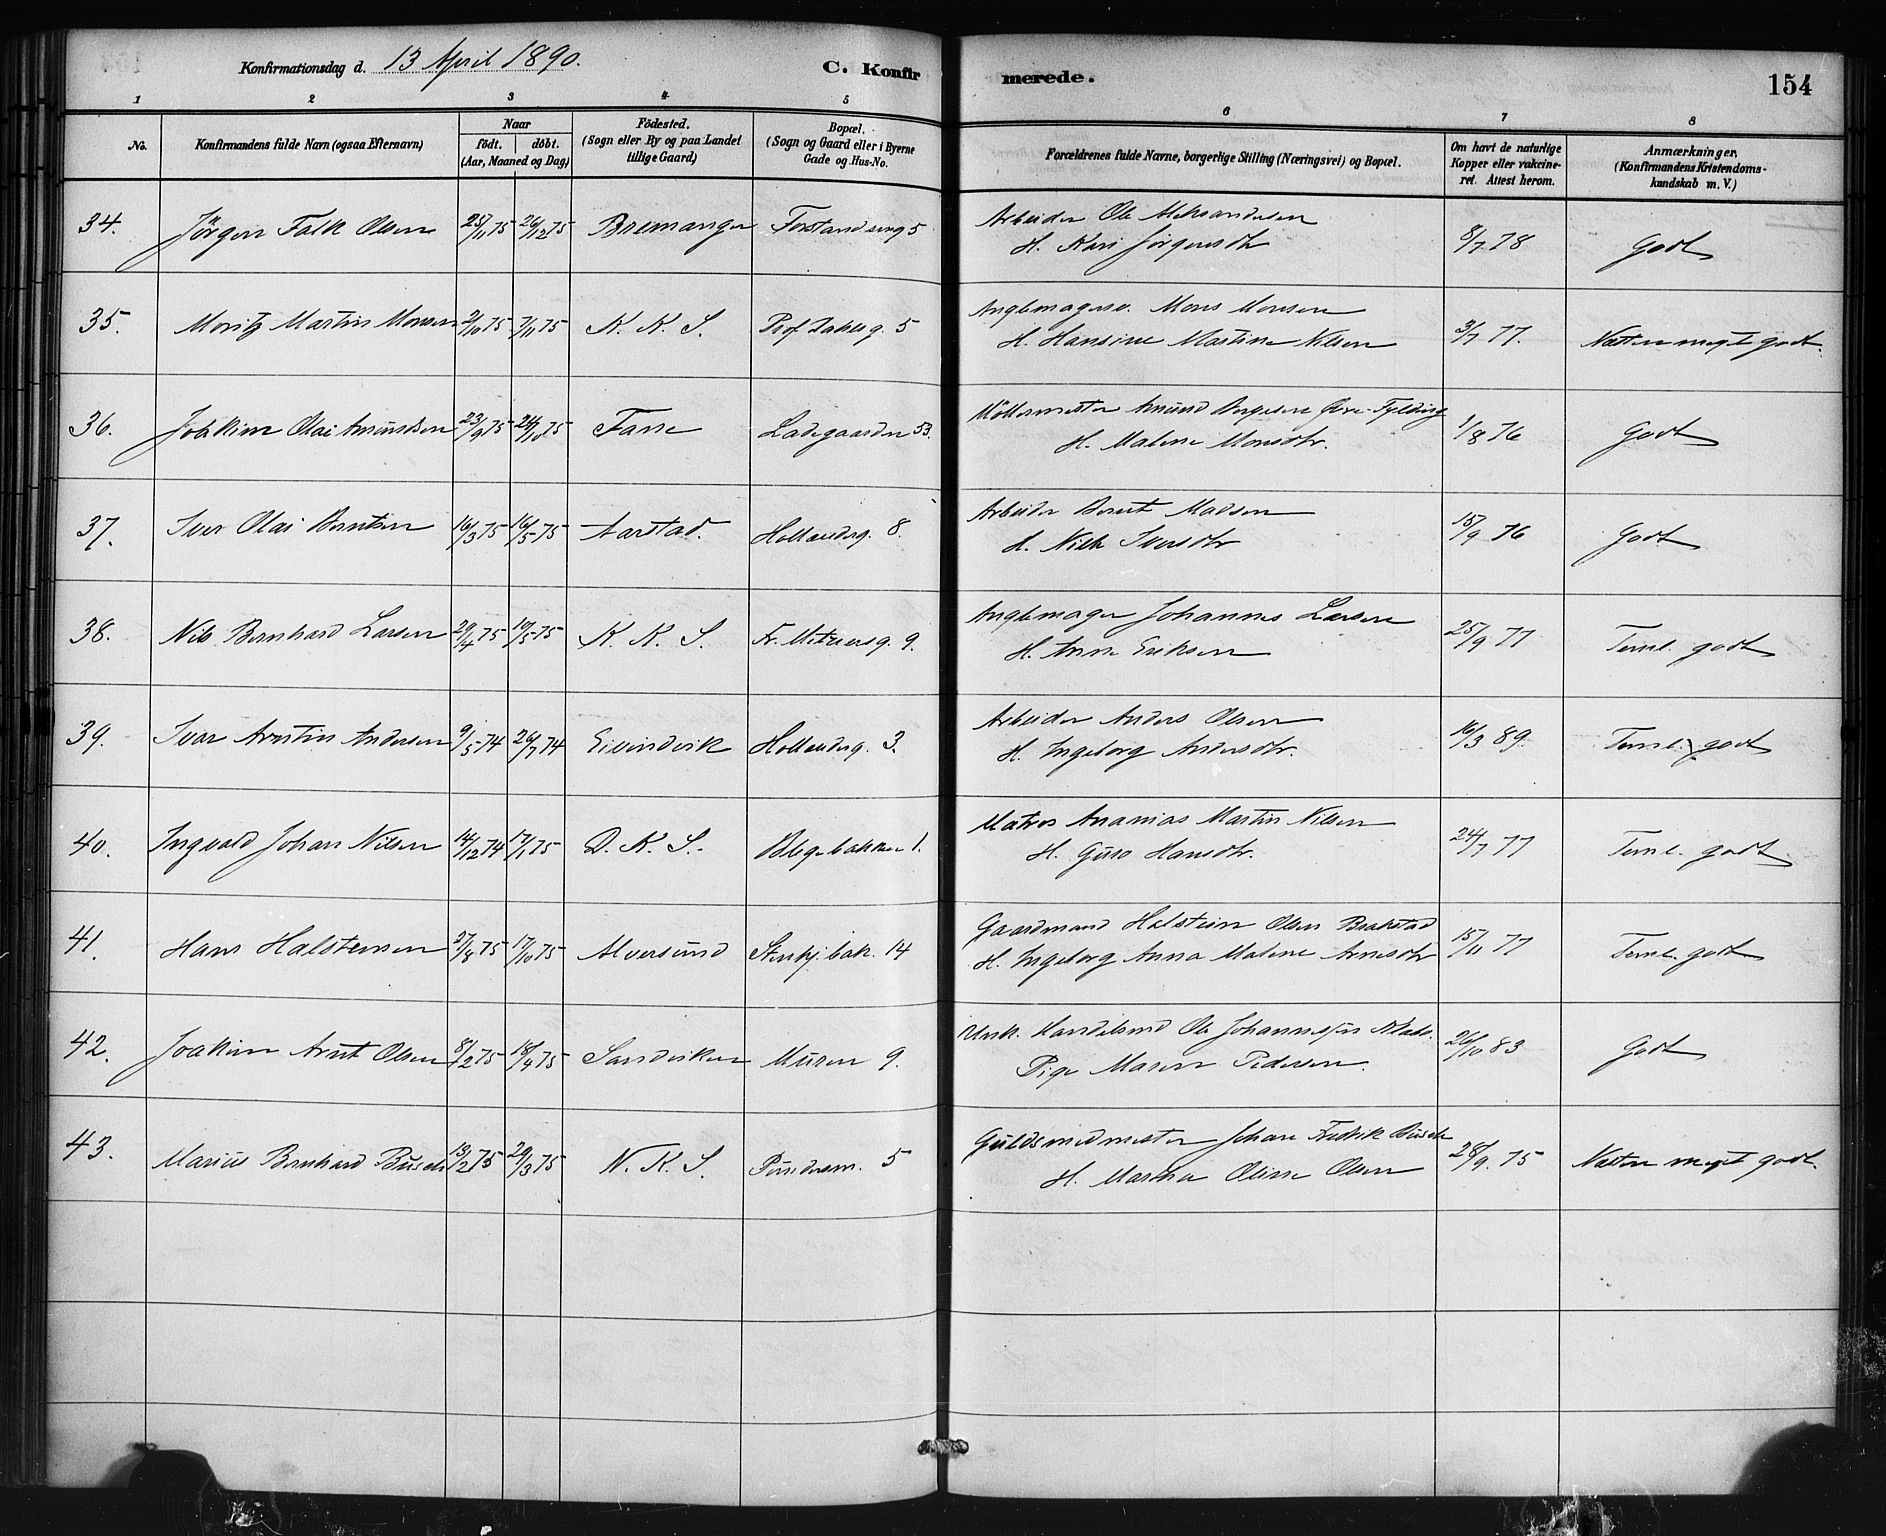 Konfirmationsdag d. 13 April 1890. C. Konfirmerede. 154
1 2 3 4 5 6 7 8
No.
Konfirmandens fulde Navn (ogsaa Efternavn)
Naar
födt. döbt.
(Aar, Maaned og Dag)
Födested.
(Sogn eller By og paa Landet
tillige Gaard)
Bopæl.
(Sogn og Gaard eller i Byerne
Gade og Hus-No.
Forældrenes fulde Navne, borgerlige Stilling (Næringsvei) og Bopæl.
Om havt de naturlige
Kopper eller vakcine-
ret. Attest herom.
Anmærkninger.
(Konfirmandens Kristendoms-
kundskab m. V.)
34. Jörgen Falk Olsen 25/11 75 26/12 75 Bremanger Forstandersmug 5 Arbeider Ole Aleksandersen 8/7 78 Godt
H. Kari Jörgensdtr
35. Moritz Martin Monsen 2/10 75 7/11 75 K. K. S. Prof. Dahls g. 5 Anglemagersv. Mons Monsen 3/7 77. Næsten meget godt.
H. Hansine Martine Nilsen
36. Joakim Olai Amundsen 23/9 75 24/10 75 Fane Ladegaarden 53. Möllermester Amund 1/8 76 Godt
H. Malene Monsdtr.
37. Iver Olai Berntsen 16/3 75 16/5 75 Aarstad. Hollenderg. 8. Arbeider Bernt Madsen 15/9 76 Godt
H. Nille Iversdtr
38. Nils Bernhard Larsen 29/4 75 19/5 75 K. K. S. Fr. Meltzersg. 9. Anglemager Johannes Larsen 25/9 77 Teml. godt
H. Anna Eriksen
39. Ivar Arntin Andersen 9/5 74 26/7 74 Eivindvik Hollenderg. 3. Arbeider Anders Olsen 16/3 89. Teml. godt
H. Ingeborg Andersdtr.
40. Ingvald Johan Nilsen 14/12 74 17/1 75 D. K. S. Blegebakken 1. Matros Ananias Martin Nilsen 24/7 77 Teml. godt
H. Guro Hansdtr.
41. Hans Halstensen 27/8 75 17/10 75 Alversund Stenkj. bak. 14 Gaardmand Halstein Olsen Brakstad 15/11 77 Teml. godt
H. Ingeborg Anna Malene Arnesdtr
42. Joakim Arnt Olsen 8/2 75 18/4 75 Sandviken Muren 9. Unk. Handelsmd Ole Johannessen 26/10 83 Godt
Pige Maren Pedersen.
43. Marius Bernhard Busch 13/2 75 29/3 75 N. K. S. Pundersm. 5 Guldsmedmester Johan Fredrik Busch 28/9 75 Næsten meget godt.
H. Martha Oline Olsen